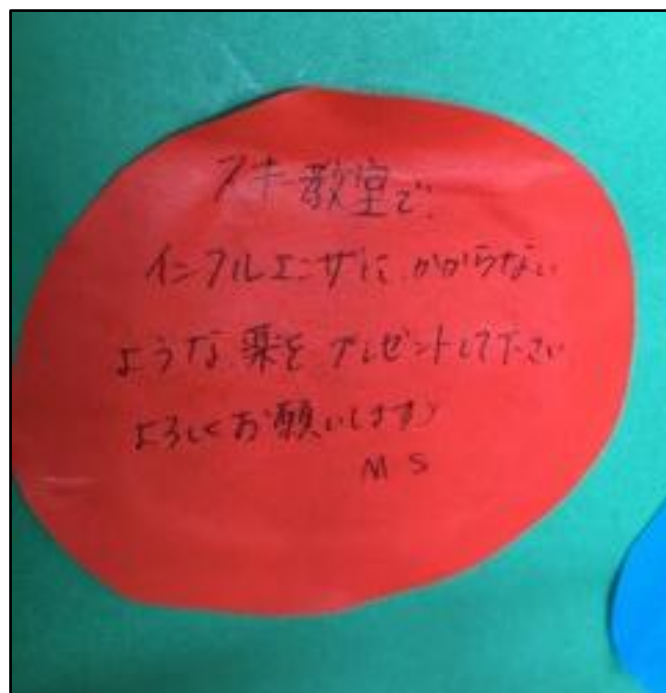 スキー教室で
インフルエンザに、かからない
ような薬をプレゼントして下さい
よろしくお願いします
M S